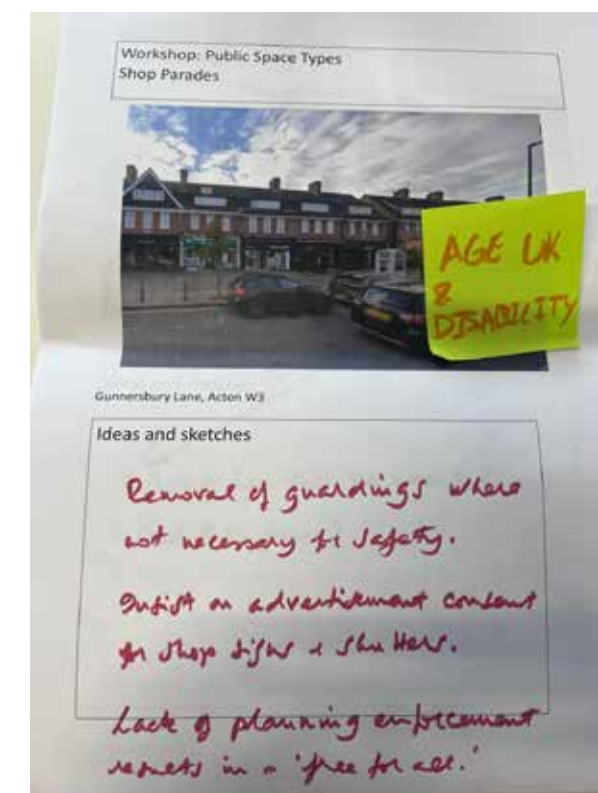 Workshop: Public Space Types
Shop Parades
AGE UK
&
DISABILITY
Gunnersbury Lane, Acton W3
Ideas and sketches
Removal of guardings where
not necessary for safety.
Insist on advertisement consent
for shop signs & shutters.
Lack of planning enforcement
results in a 'free for all.'